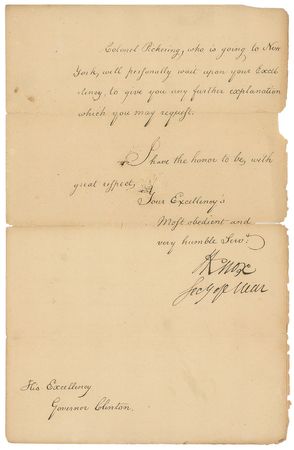 Colonel Pickering, who is going to New
York, will personally wait upon your Excel-
lency, to give you any further explanation
which you may request.
I have the honor to be, with
great respect,
Your Excellency's
Most obedient and
very humble Servt.
HKnox
Secy of War
His Excellency
Governor Clinton.